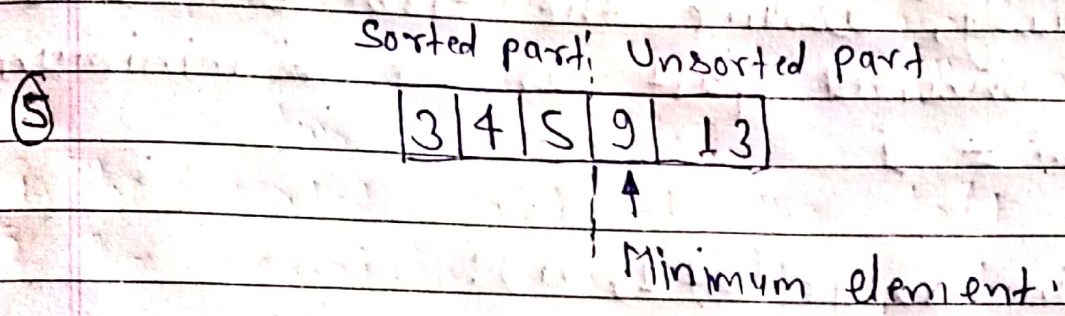 Sorted part Unsorted part
5 3 4 5 9 13
Minimum element.